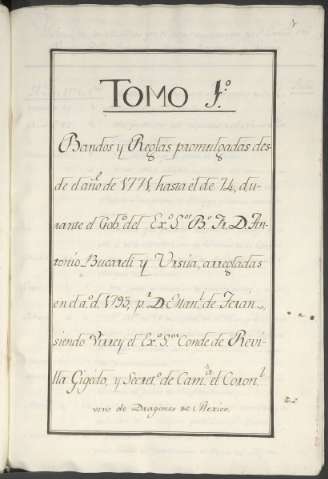 TOMO 1.º
Bandos y Reglas promulgadas des-
de el año de 1771, hasta el de 74, du-
rante el Gob.º del Ex.º S.ᵒʳ B.º Fr. D. An-
tonio Bucareli y Ursúa, arregladas
en el a.º d. 1793, p.ʳ D. de Teran,
siendo Virrey el Ex.º S.ᵒʳ Conde de Revi-
lla Gigedo, y Secret.º de Cam.ª el Coron.ˡ
vivo de Dragones de Mexico.